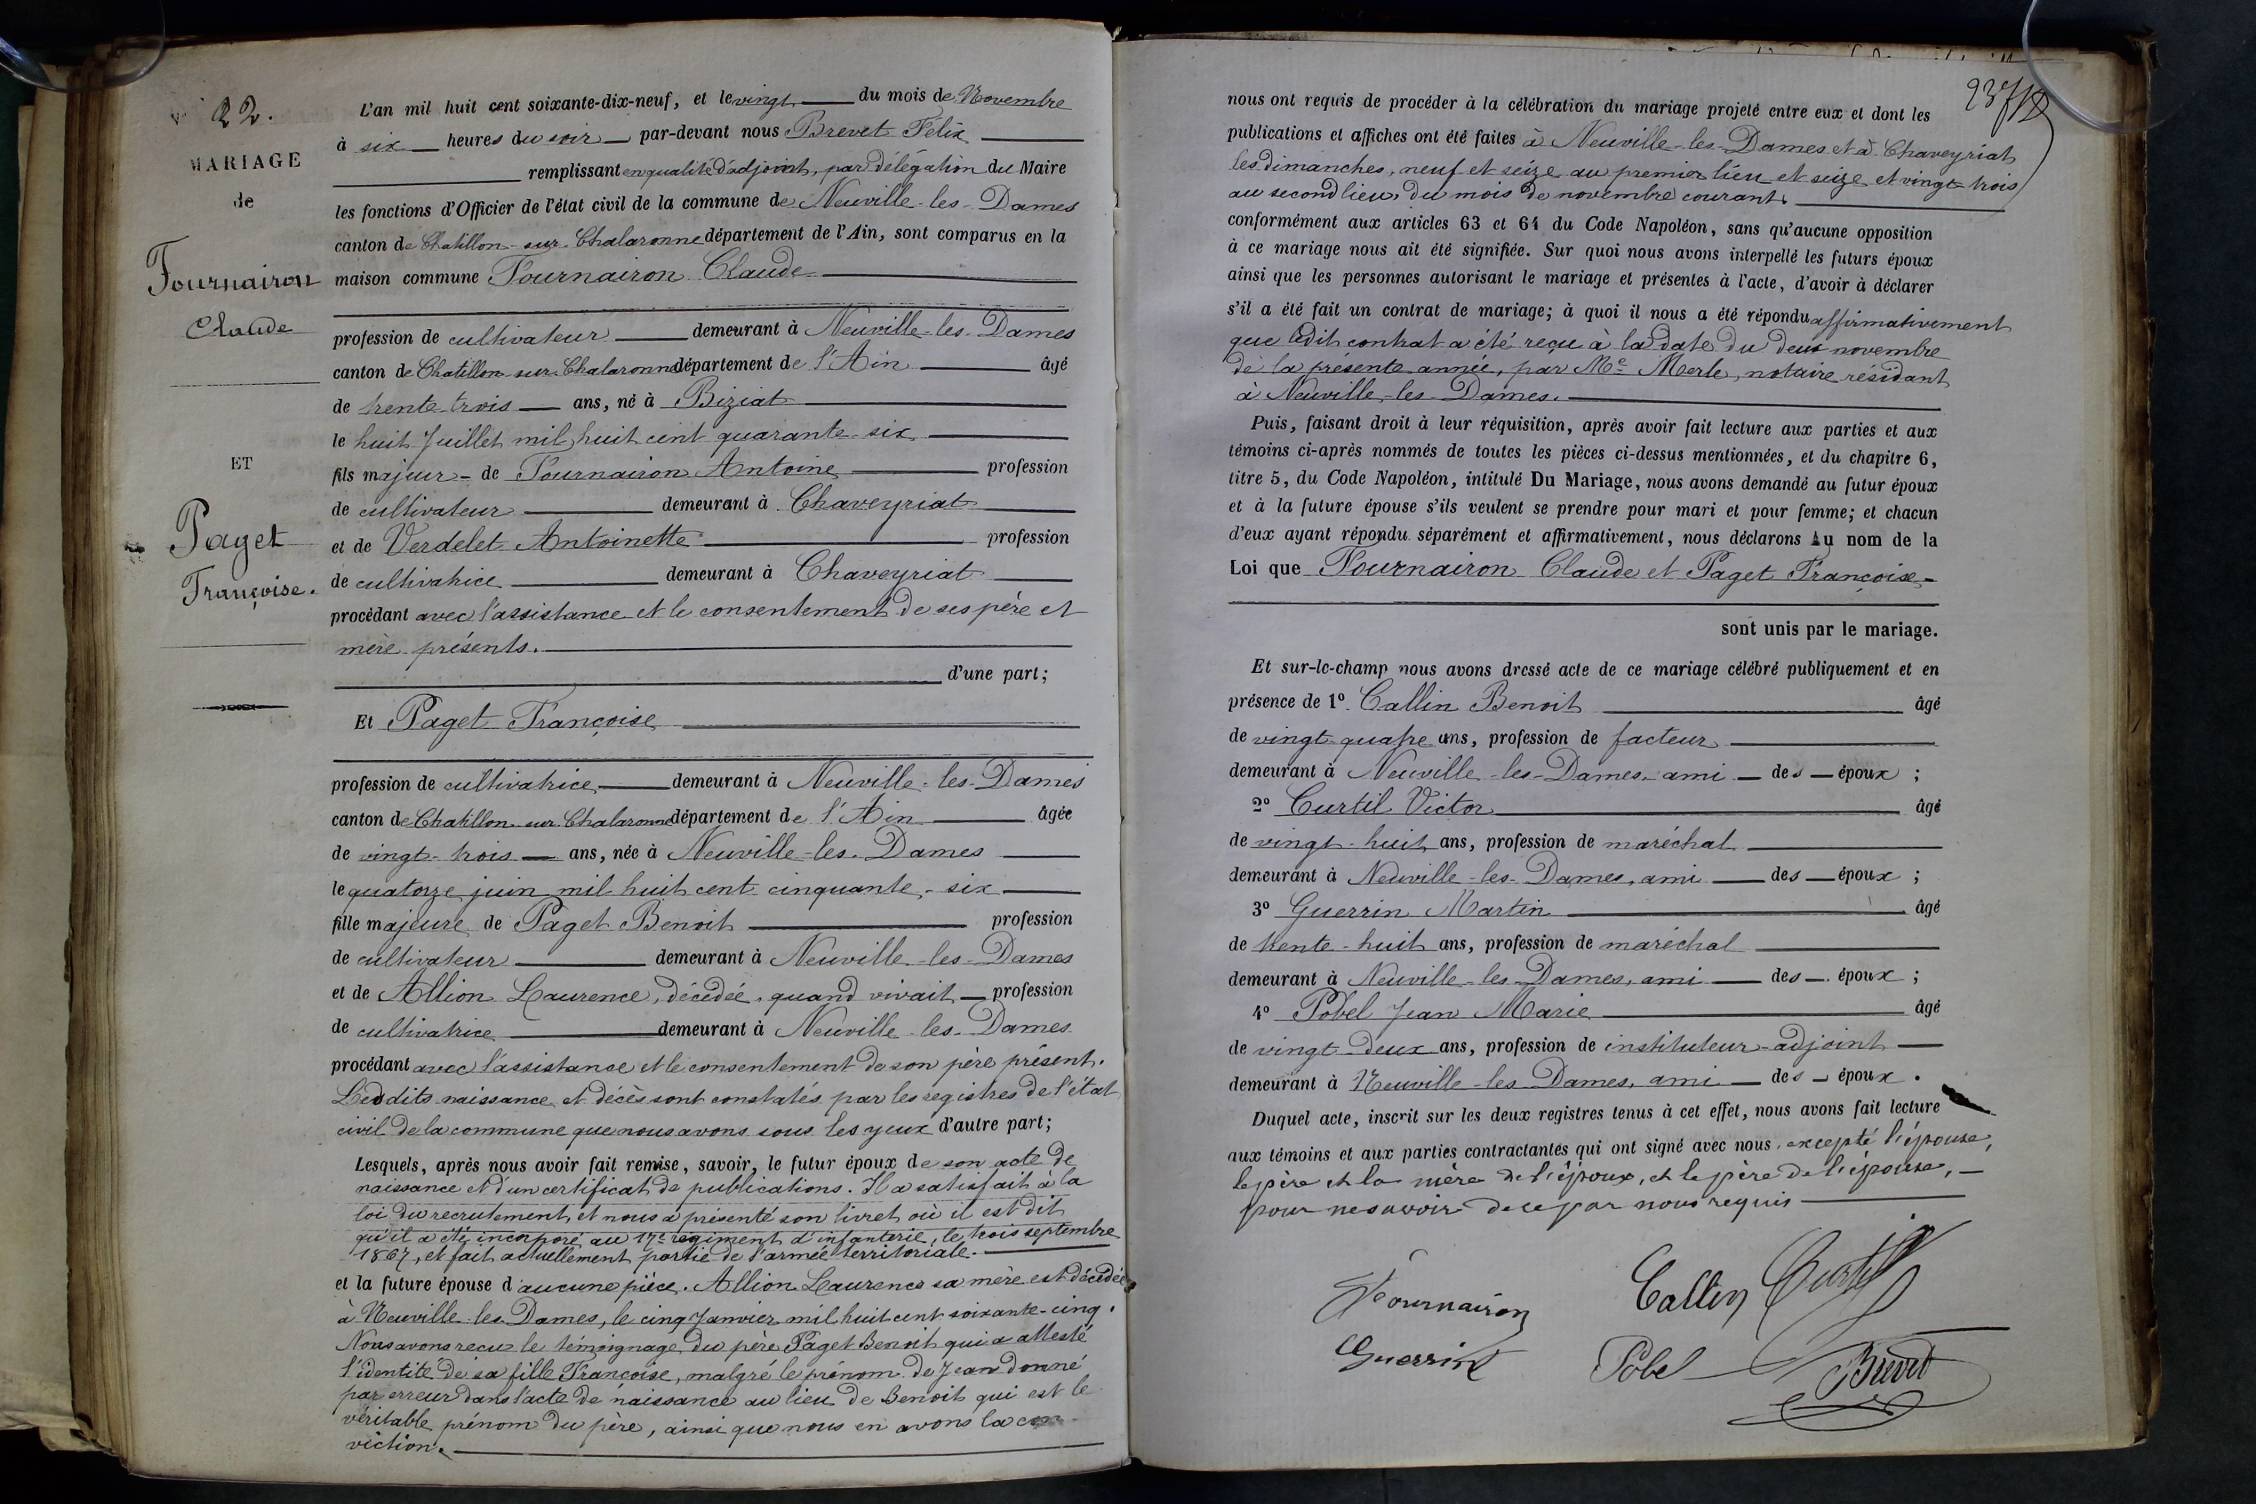 22.
MARIAGE
de
Fournairon
Claude
ET
Paget
Françoise.
L'an mil huit cent soixante-dix-neuf, et le vingt du mois de Novembre
à six heures du soir par-devant nous Brevet Félix
remplissant en qualité d'adjoint, par délégation du Maire
les fonctions d'Officier de l'état civil de la commune de Neuville-les-Dames
canton de Chatillon-sur-Chalaronne département de l'Ain, sont comparus en la
maison commune Fournairon Claude
profession de cultivateur demeurant à Neuville-les-Dames
canton de Chatillon-sur-Chalaronne département de l'Ain âgé
de trente-trois ans, né à Biziat
le huit Juillet mil huit cent quarante-six
fils majeur de Fournairon Antoine profession
de cultivateur demeurant à Chaveyriat
et de Verdelet Antoinette profession
de cultivatrice demeurant à Chaveyriat
procédant avec l'assistance et le consentement de ses père et
mère présents.
d'une part;
Et Paget Françoise
profession de cultivatrice demeurant à Neuville-les-Dames
canton de Chatillon-sur-Chalaronne département de l'Ain âgée
de vingt-trois ans, née à Neuville-les-Dames
le quatorze juin mil huit cent cinquante-six
fille majeure de Paget Benoit profession
de cultivateur demeurant à Neuville-les-Dames
et de Allion Laurence, décédée, quand vivait profession
de cultivatrice demeurant à Neuville-les-Dames
procédant avec l'assistance et le consentement de son père présent.
Lesdits naissance et décès sont constatés par les registres de l'état
civil de la commune que nous avons sous les yeux d'autre part;
Lesquels, après nous avoir fait remise, savoir, le futur époux de son acte de
naissance et d'un certificat de publications. Il a satisfait à la
loi du recrutement, et nous a présenté son livret où il est dit
qu'il a été incorporé au 17e régiment d'infanterie, le trois septembre
1867, et fait actuellement partie de l'armée territoriale.
et la future épouse d'aucune pièce. Allion Laurence sa mère est décédée
à Neuville-les-Dames, le cinq Janvier mil huit cent soixante-cinq.
Nous avons reçu le témoignage du père Paget Benoit qui a attesté
l'identité de sa fille Françoise, malgré le prénom de Jean donné
par erreur dans l'acte de naissance au lieu de Benoit qui est le
véritable prénom du père, ainsi que nous en avons la con-
viction.
nous ont requis de procéder à la célébration du mariage projeté entre eux et dont les
publications et affiches ont été faites à Neuville-les-Dames et à Chaveyriat
les dimanches, neuf et seize au premier lieu et seize et vingt-trois
au second lieu, du mois de novembre courant.
conformément aux articles 63 et 64 du Code Napoléon, sans qu'aucune opposition
à ce mariage nous ait été signifiée. Sur quoi nous avons interpellé les futurs époux
ainsi que les personnes autorisant le mariage et présentes à l'acte, d'avoir à déclarer
s'il a été fait un contrat de mariage; à quoi il nous a été répondu affirmativement
que ledit contrat a été reçu à la date du deux novembre
de la présente année, par Me Merle, notaire résidant
à Neuville-les-Dames.
Puis, faisant droit à leur réquisition, après avoir fait lecture aux parties et aux
témoins ci-après nommés de toutes les pièces ci-dessus mentionnées, et du chapitre 6,
titre 5, du Code Napoléon, intitulé Du Mariage, nous avons demandé au futur époux
et à la future épouse s'ils veulent se prendre pour mari et pour femme; et chacun
d'eux ayant répondu séparément et affirmativement, nous déclarons Au nom de la
Loi que Fournairon Claude et Paget Françoise
sont unis par le mariage.
Et sur-le-champ nous avons dressé acte de ce mariage célébré publiquement et en
présence de 1º Callin Benoit âgé
de vingt-quatre ans, profession de facteur
demeurant à Neuville-les-Dames, ami des époux ;
2º Curtil Victor âgé
de vingt-huit ans, profession de maréchal
demeurant à Neuville-les-Dames, ami des époux ;
3º Guerrin Martin âgé
de trente-huit ans, profession de maréchal
demeurant à Neuville-les-Dames, ami des époux ;
4º Pobel Jean Marie âgé
de vingt-deux ans, profession de instituteur-adjoint
demeurant à Neuville-les-Dames, ami des époux.
Duquel acte, inscrit sur les deux registres tenus à cet effet, nous avons fait lecture
aux témoins et aux parties contractantes qui ont signé avec nous, excepté l'épouse,
le père et la mère de l'époux, et le père de l'épouse,
pour ne savoir de ce par nous requis
Fournairon Callin Curtil
Guerrin Pobel Brevet